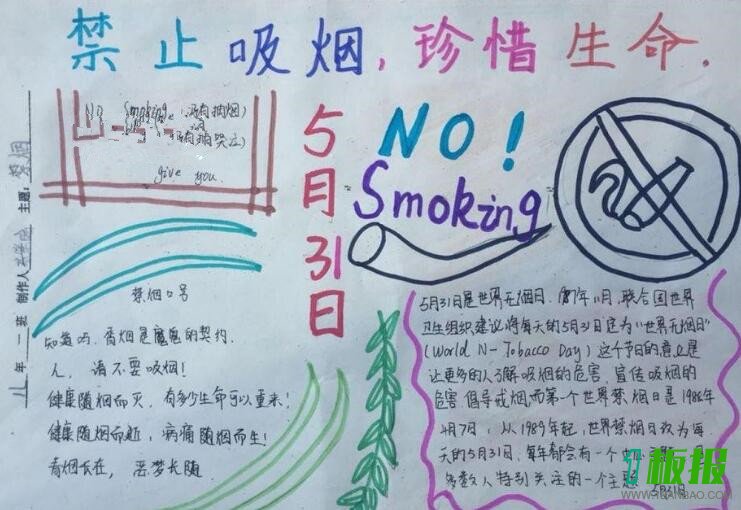 禁止吸烟,珍惜生命.
No Smoking
give you.
主题: 禁烟
制作人
年 二 班
5月31日
NO!
Smoking
禁烟口号
香烟是魔鬼的契约.
人, 请不要吸烟!
健康随烟而灭, 有多少生命可以重来!
健康随烟而逝, 病痛随烟而生!
香烟长在, 恶梦长随
5月31日是世界无烟日. 11月, 联合国世界
卫生组织建议将每天的5月31日定为"世界无烟日"
(World N- Tobacco Day) 这个节日的意义是
让更多的人了解吸烟的危害 宣传吸烟的
危害 倡导戒烟 而第一个世界禁烟日是1988年
4月7日, 从1989年起, 世界禁烟日改为每
天的5月31日, 每年都会有一个
多数人特别关注的一个主题
5月31日
板报
www.1BANBAO.COM